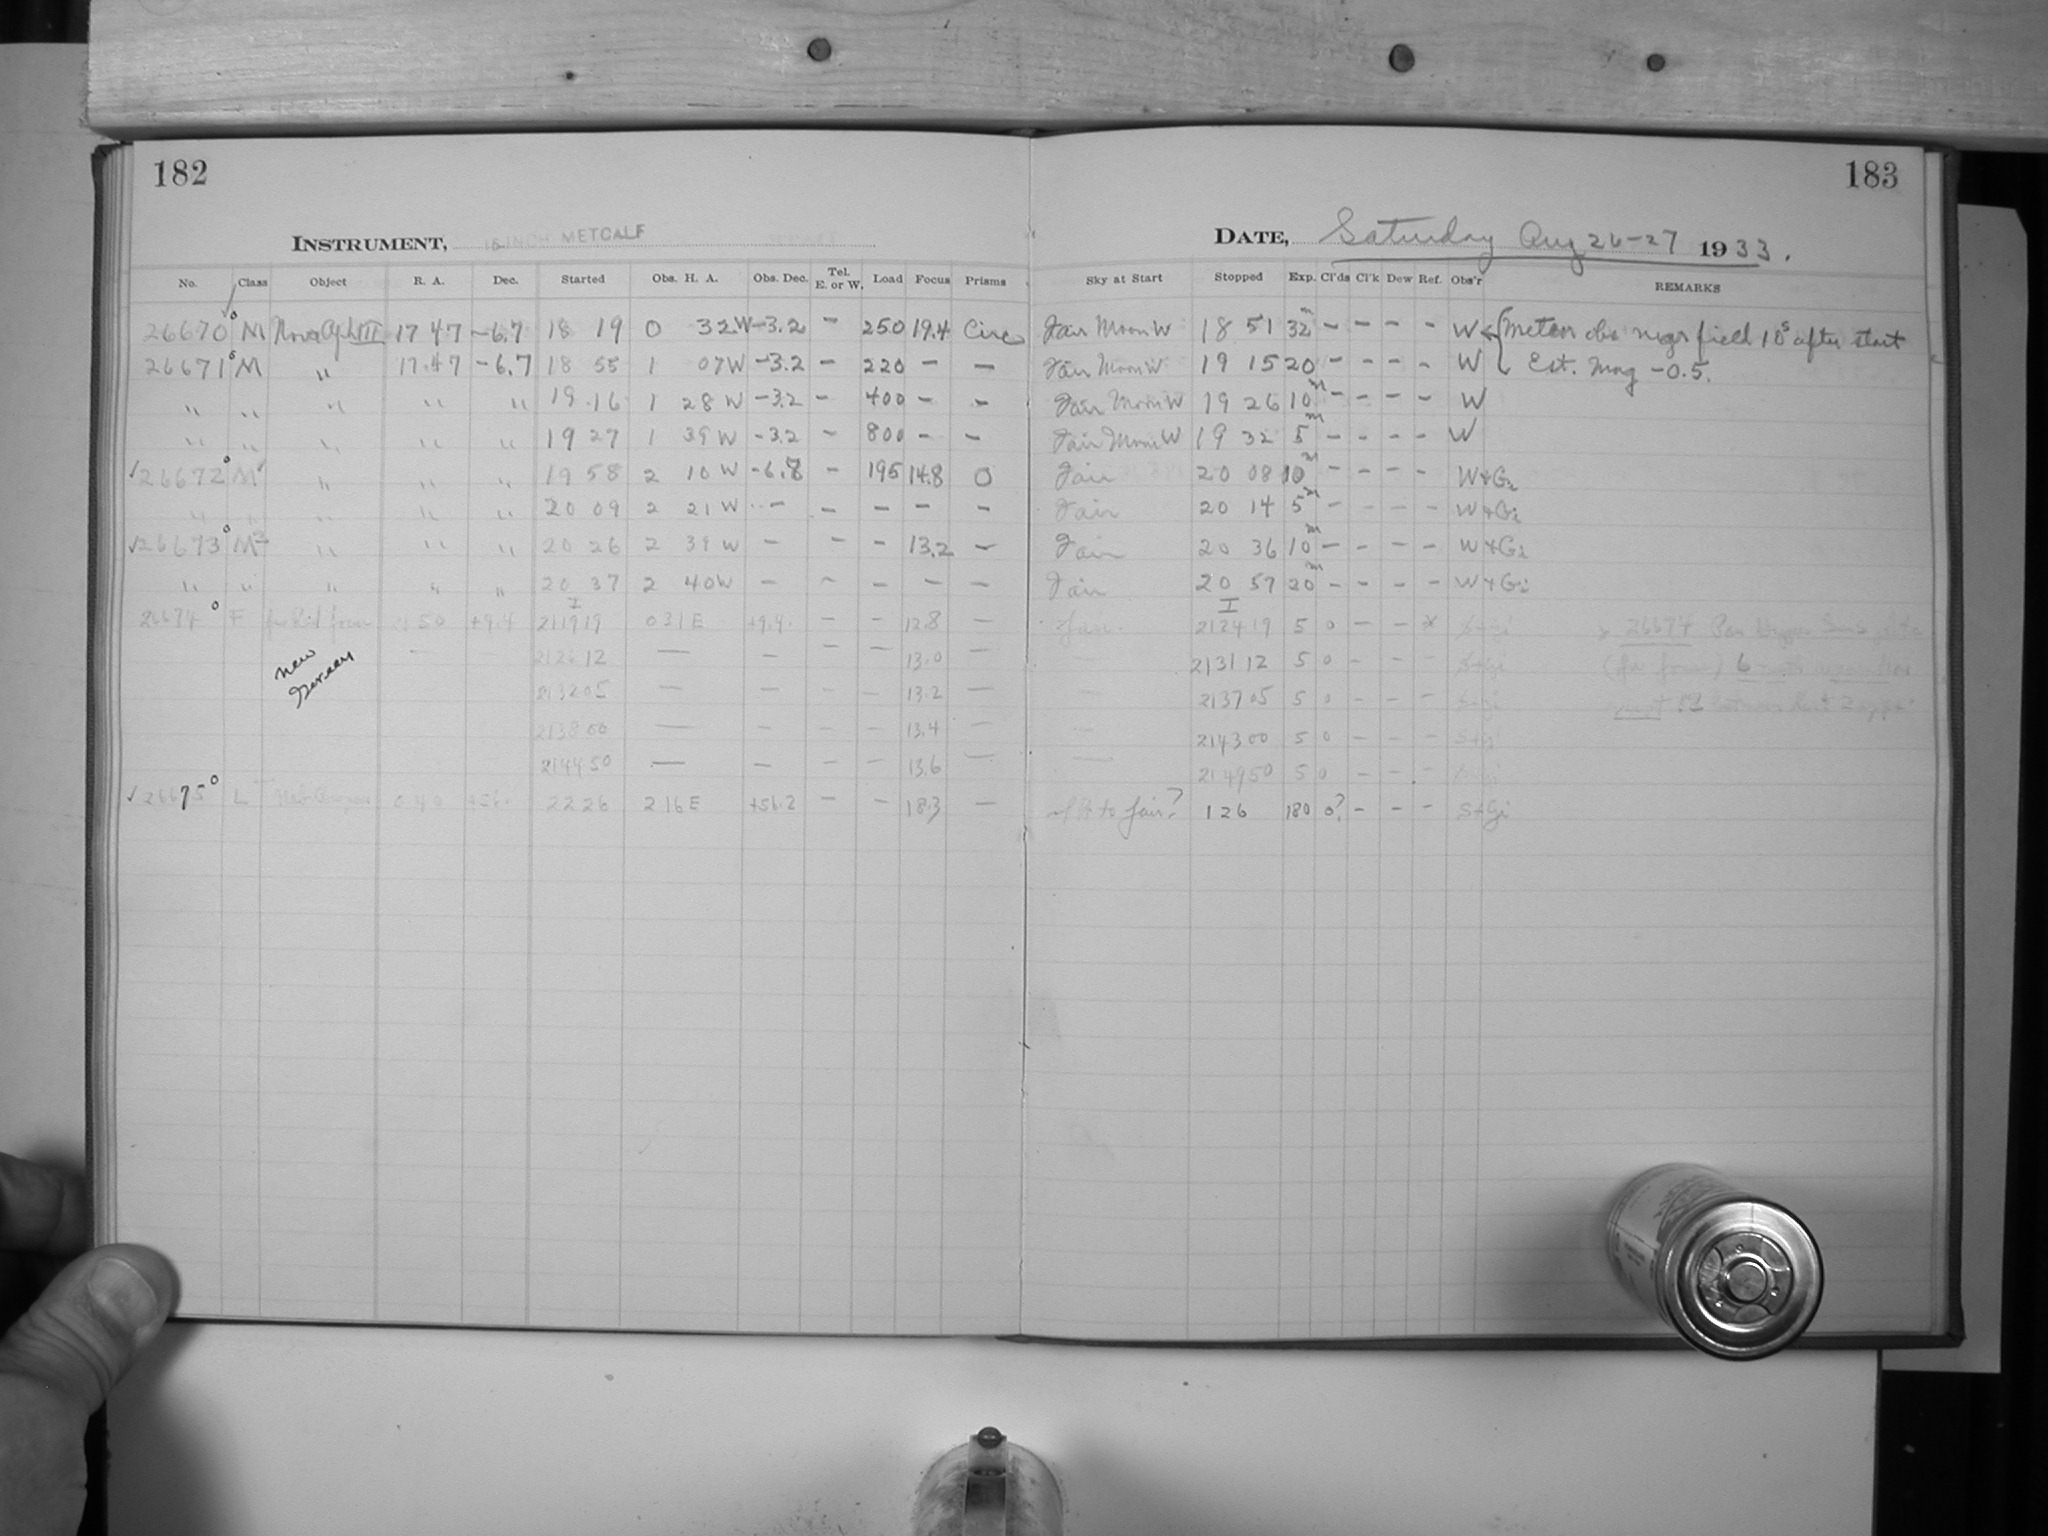 182
183
INSTRUMENT, 16 INCH METCALF
DATE, Saturday Aug 26-27 1933.
No. Class Object R. A. Dec. Started Obs. H. A. Obs. Dec. Tel. E. or W. Load Focus Prisms Sky at Start Stopped Exp. Cl'ds Cl'k Dew Ref. Obs'r REMARKS
26670 M Nova Oph III 17 47 -6.7 18 19 0 32 W -3.2 - 250 19.4 Circ Fair Moon W 18 51 32m - - - - W Meteor obs near field 10s after start
26671 M " 17.47 -6.7 18 55 1 07 W -3.2 - 220 - - Fair Moon W 19 15 20 - - - - W Est. Mag -0.5.
" " " " " 19 16 1 28 W -3.2 - 400 - - Fair Moon W 19 26 10m - - - - W
" " " " " 19 27 1 39 W -3.2 - 800 - - Fair Moon W 19 32 5m - - - - W
√26672 M " " " 19 58 2 10 W -6.8 - 195 14.8 0 Fair 20 08 10m - - - - W+Gi
" " " " " 20 09 2 21 W - - - - - Fair 20 14 5m - - - - W+Gi
√26673 M " " " 20 26 2 39 W - - - 13.2 - Fair 20 36 10m - - - - W+Gi
" " " " " 20 37 2 40 W - - - - - Fair 20 57 20m - - - - W+Gi
26674 F 50 +9.4 21 19 19 0 31 E +9.4 - - 12.8 - Fair 21 24 19 5 0 - - * S+Gi 26674
new Screen
— — 21 26 12 — — - - 13.0 — 21 31 12 5 0 - - - S+Gi
21 32 05 — — - - 13.2 — 21 37 05 5 0 - - - S+Gi
21 38 00 — — - - 13.4 — 21 43 00 5 0 - - - S+Gi
21 44 50 — — - - 13.6 — 21 49 50 5 0 - - - S+Gi
√26675 L 0 40 +56. 22 26 2 16 E +56.2 - - 18.3 - to fair? 1 26 180 0? - - - S+Gi